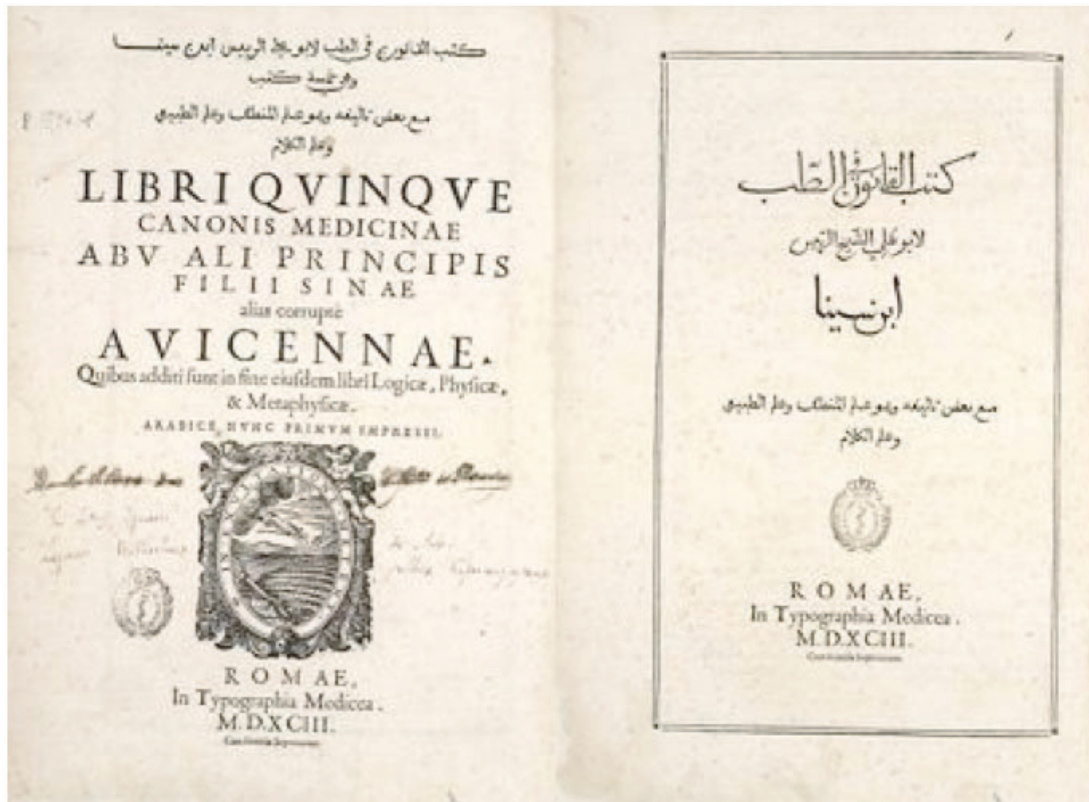 كتب القانون في الطب لابو علي الرييس ابن سينا
وهي خمسة كتب
مع بعض تاليفه وهو علم المنطق وعلم الطبيعي
وعلم الكلام
LIBRI QVINQVE
CANONIS MEDICINAE
ABV ALI PRINCIPIS
FILII SINAE
alias corruptè
AVICENNAE.
Quibus additi sunt in fine eiusdem libri Logicæ, Physicæ,
& Metaphysicæ.
ARABICE NVNC PRIMVM IMPRESSI.
ROMAE,
In Typographia Medicea.
M.D.XCIII.
كتب القانون في الطب
لابو علي الشيخ الرييس
ابن سينا
مع بعض تاليفه وهو علم المنطق وعلم الطبيعي
وعلم الكلام
ROMAE,
In Typographia Medicea.
M.D.XCIII.